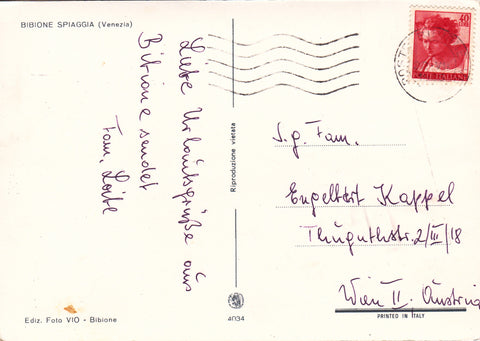 BIBIONE SPIAGGIA (Venezia)
Liebe Urlaubsgrüße aus
Bibione sendet
Fam.
40
POSTE ITALIANE
Riproduzione vietata
S.g. Fam.
Engelbert Kappel
Thugutstr. 2/III/18
Wien II. Austria
Ediz. Foto VIO - Bibione
4034
PRINTED IN ITALY